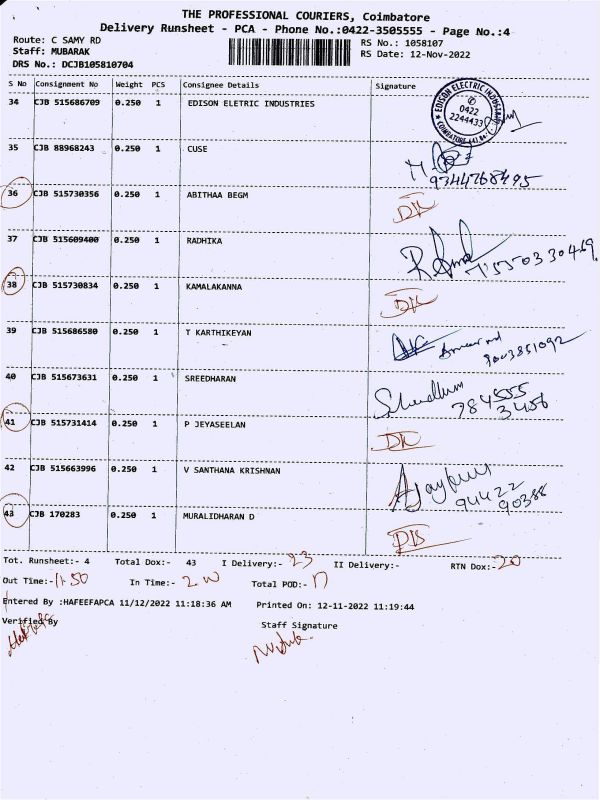 THE PROFESSIONAL COURIERS, Coimbatore
Delivery Runsheet - PCA - Phone No.:0422-3505555 - Page No.:4
Route: C SAMY RD
RS No.: 1058107
Staff: MUBARAK
RS Date: 12-Nov-2022
DRS No.: DCJB105810704
S No Consignment No Weight PCS Consignee Details Signature
34 CJB 515686709 0.250 1 EDISON ELETRIC INDUSTRIES
EDISON ELECTRIC INDUSTRIES
0422
2244433
COIMBATORE
35 CJB 88968243 0.250 1 CUSE
9344768495
36 CJB 515730356 0.250 1 ABITHAA BEGM
37 CJB 515609400 0.250 1 RADHIKA
38 CJB 515730834 0.250 1 KAMALAKANNA
39 CJB 515686580 0.250 1 T KARTHIKEYAN
9003851092
40 CJB 515673631 0.250 1 SREEDHARAN
784555
3456
41 CJB 515731414 0.250 1 P JEYASEELAN
42 CJB 515663996 0.250 1 V SANTHANA KRISHNAN
94422
90388
43 CJB 170283 0.250 1 MURALIDHARAN D
Tot. Runsheet:- 4 Total Dox:- 43 I Delivery:- 23 II Delivery:- RTN Dox:- 20
Out Time:- 11.50 In Time:- Total POD:-
Entered By :HAFEEFAPCA 11/12/2022 11:18:36 AM Printed On: 12-11-2022 11:19:44
Verified By Staff Signature